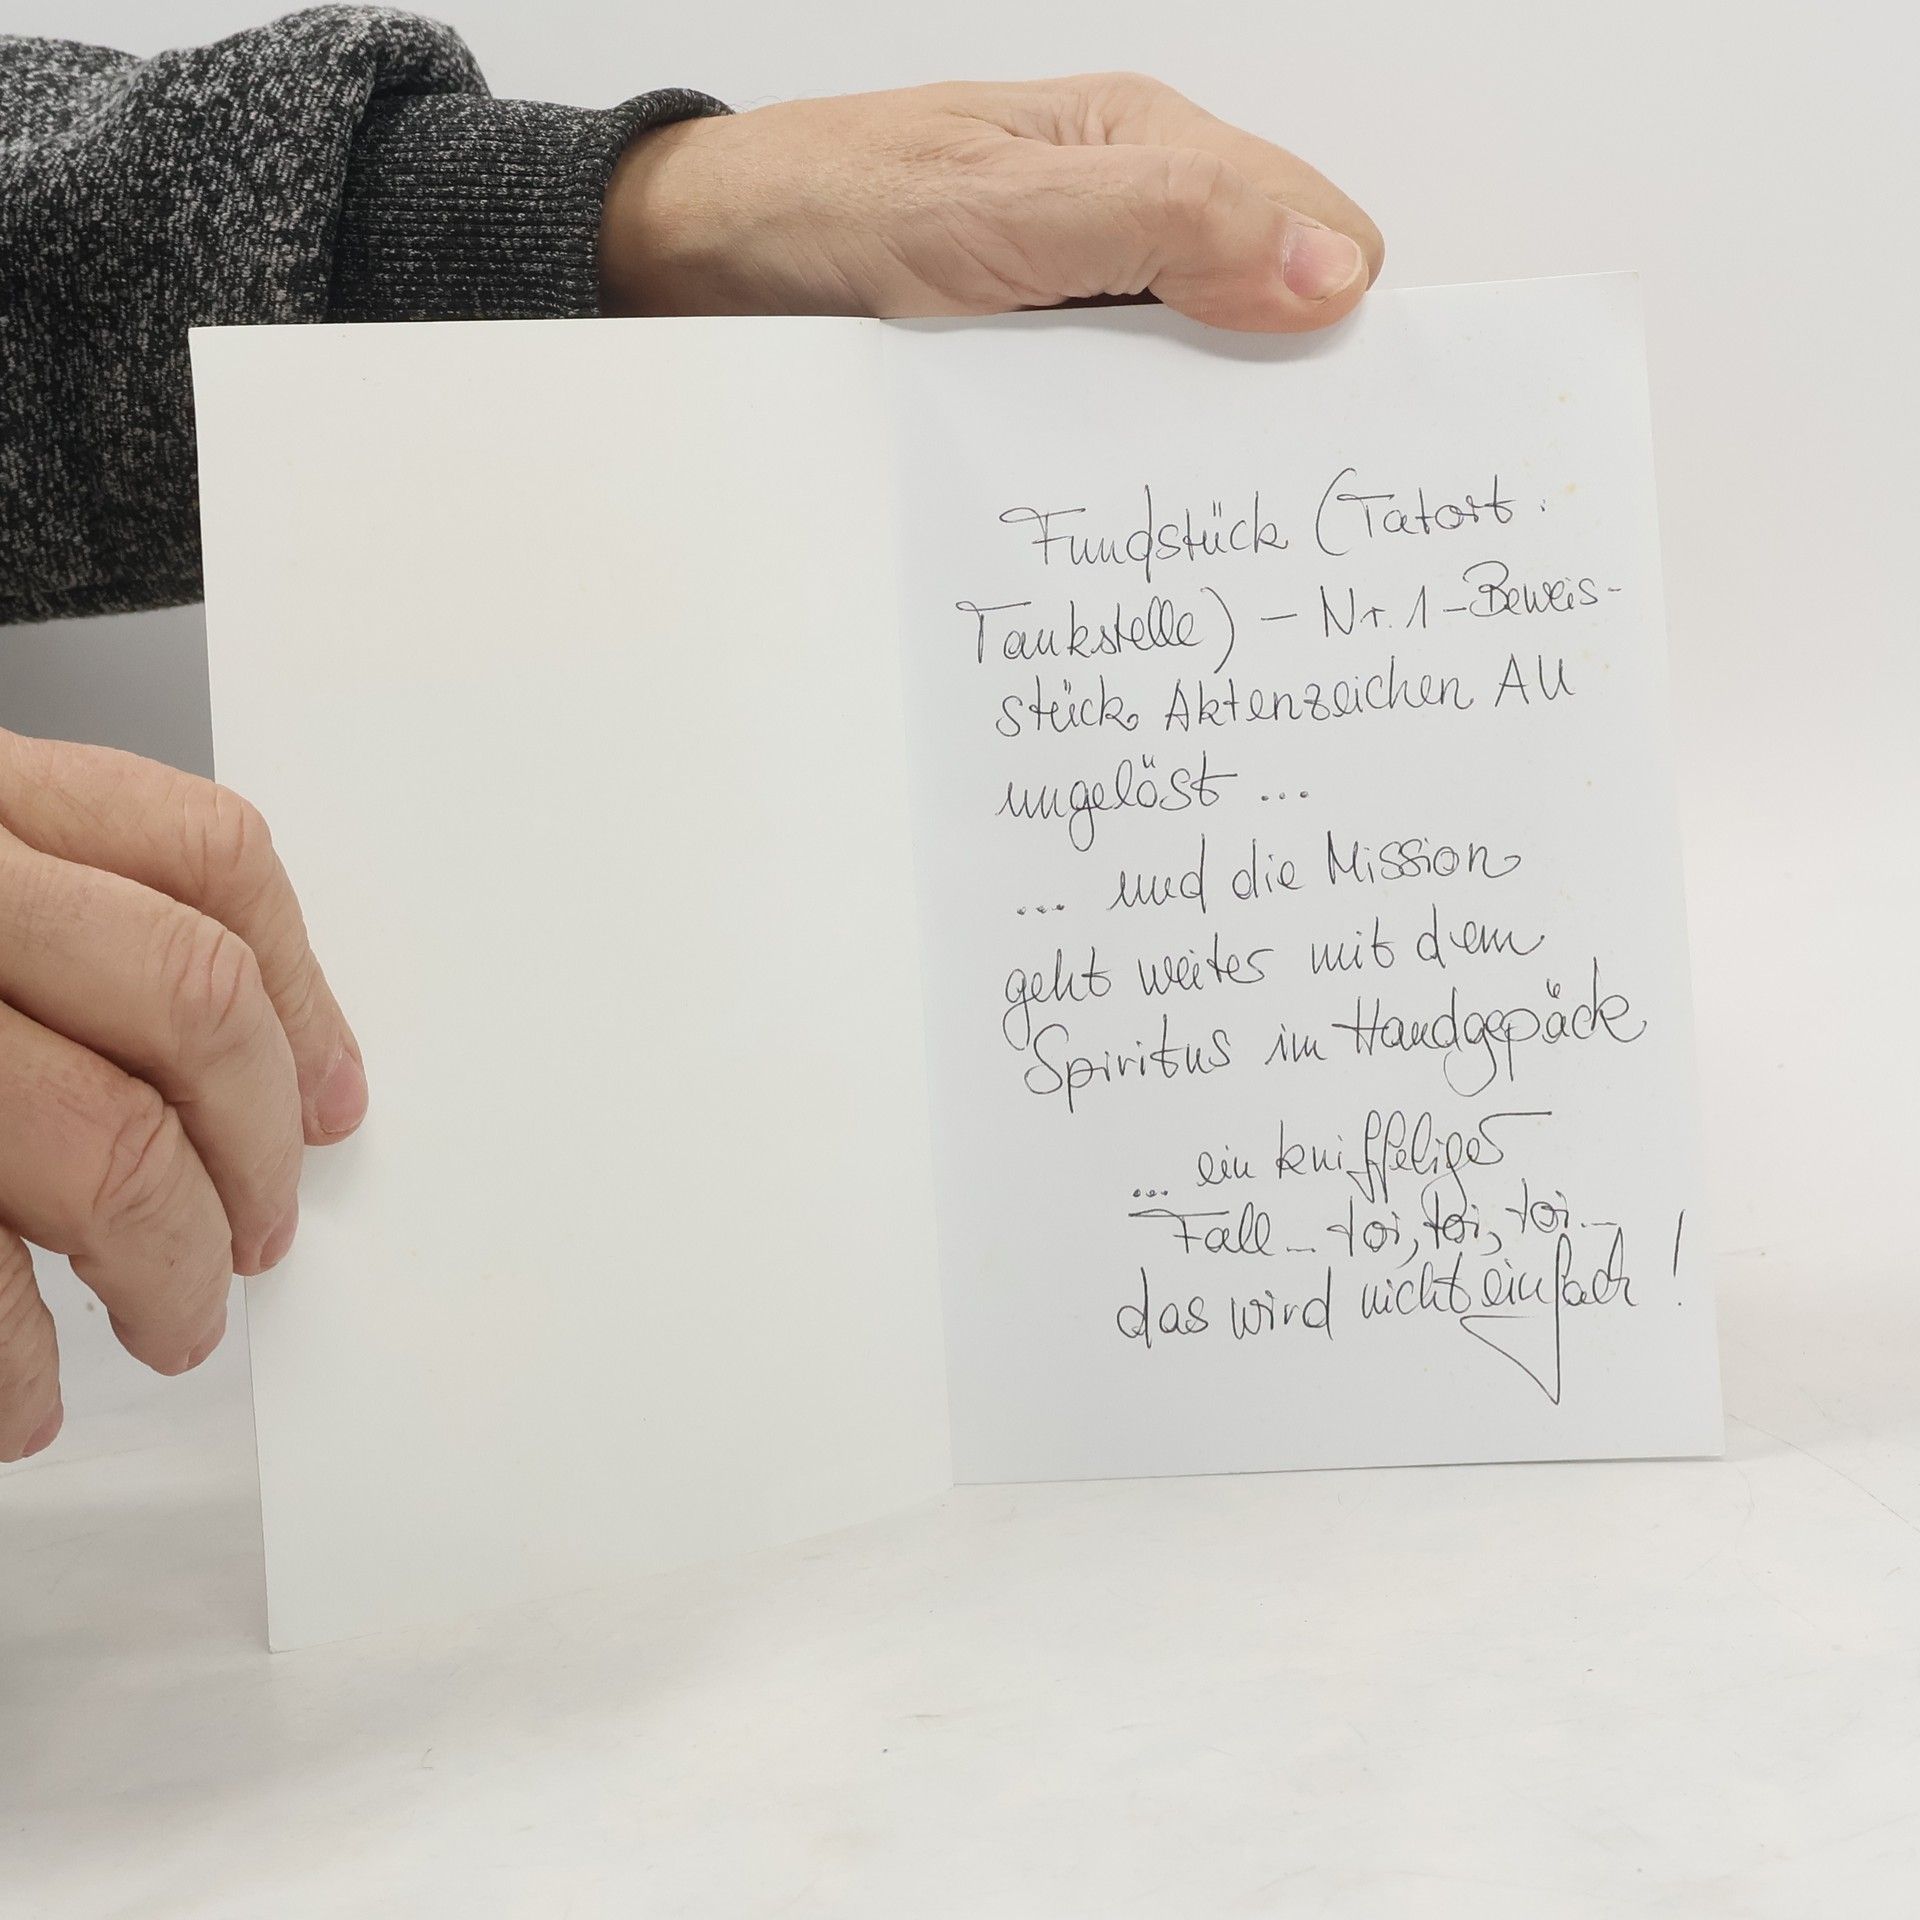 Fundstück (Tatort:
Tankstelle) – Nr. 1 – Beweis-
stück Aktenzeichen AU
ungelöst ...
... und die Mission
geht weiter mit dem
Spiritus im Handgepäck
... ein kniffeliger
Fall ... toi, toi, toi ...
das wird nicht einfach!